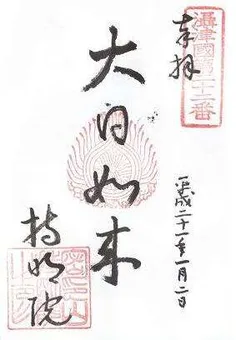 攝津國第十三番
奉拝
大日如来
平成二十一年一月二日
持明院